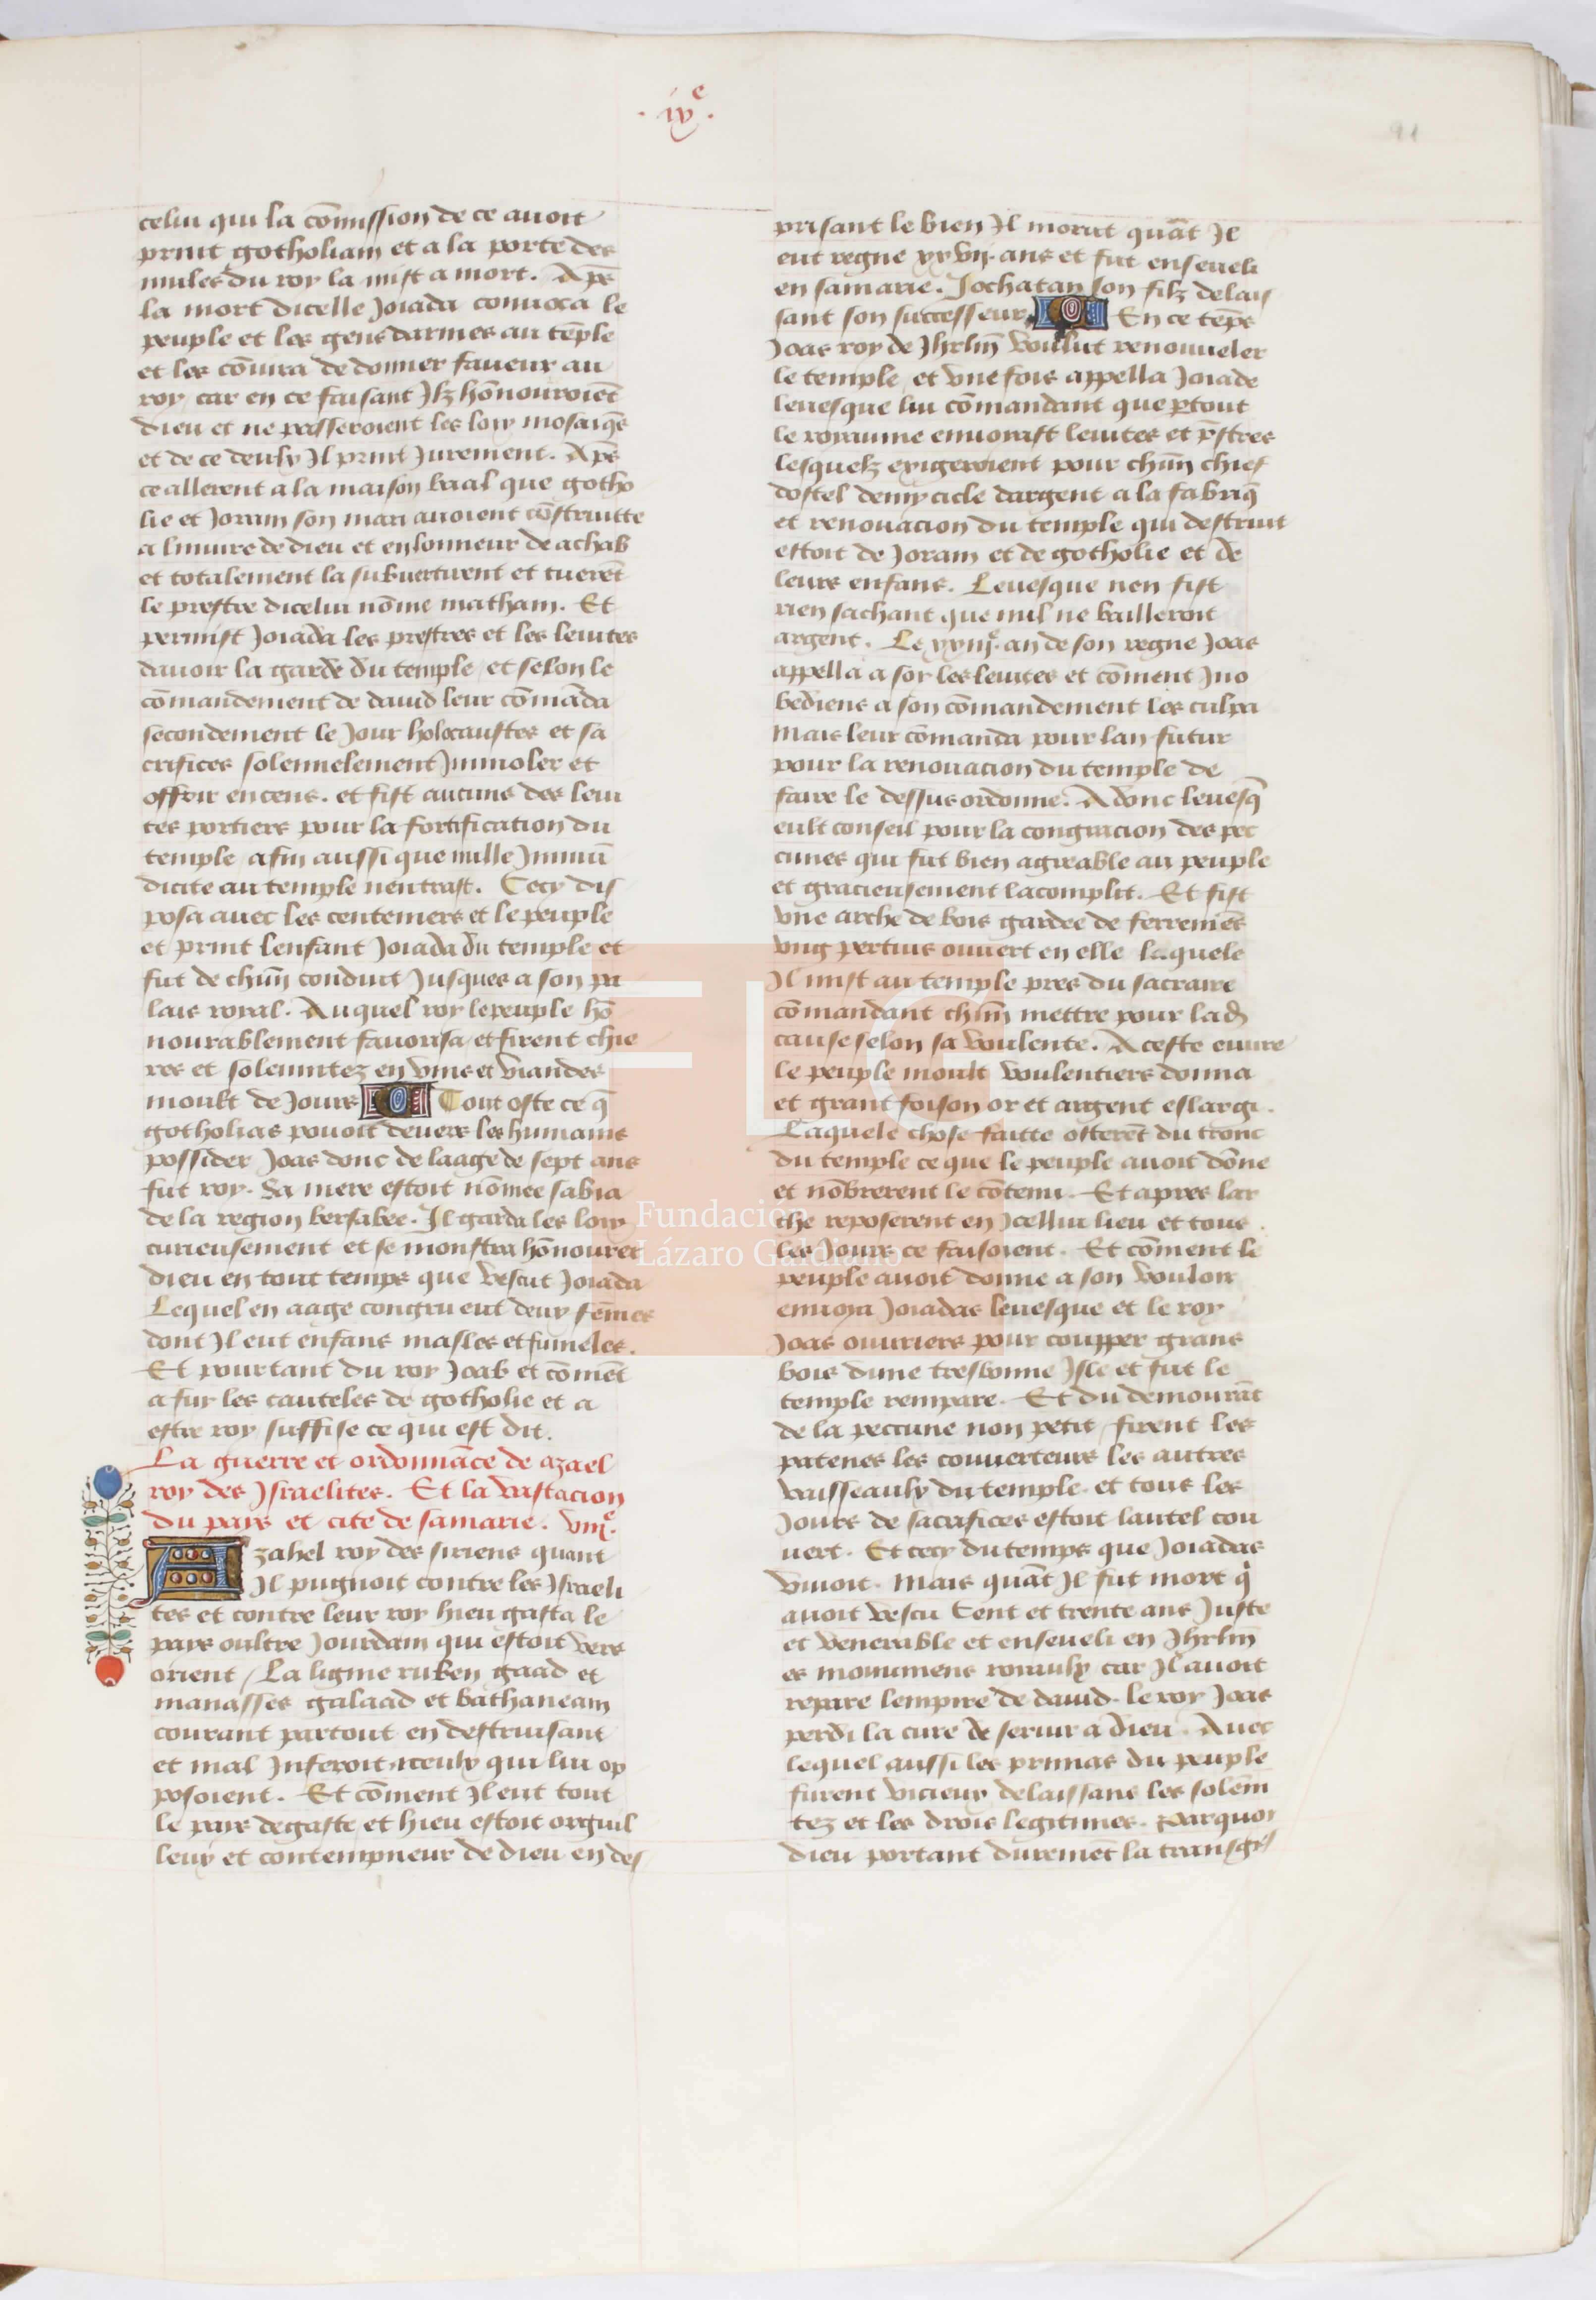 .ixͤ.
91
celui qui la cōmission de ce auoit
print gotholiam et a la porte des
mules du roy la mist a mort. Apꝭ
la mort dicelle Joiada conuoca le
peuple et les gens darmes au tēple
et les cōiura de donner faueur au
roy car en ce faisant Jlz hōnouroiēt
dieu et ne passeroient les loix mosaiq̄s
et de ce deulx Il print Jurement. Apꝭ
ce allerent a la maison baal que gotho
lie et Joram son mari auoient cōstruitte
a liniure de dieu et en lonneur de achab
et totalement la subuertirent et tuerēt
le prestre dicelui nōme matham. Et
permist Joiada les prestres et les leuites
dauoir la garde du temple et selon le
cōmandement de dauid leur cōmāda
secondement le Jour holocaustes et sa
crifices solennelement Jmmoler et
offrir encens. et fist aucuns des leui
tes portiers pour la fortification du
temple afin aussi que nulle Jnmū
dicite au temple nentrast. Cecy dis
posa auec les centeniers et le peuple
et print lenfant Joiada du temple et
fut de chūn conduit Jusques a son pa
lais roial. Auquel roy le peuple hō
nourablement fauorisa et firent chie
res et solennitez en vins et viandes
moult de Jours Tout oste ce q̄
gotholias pouoit deuers les humains
possider Joas donc de laage de sept ans
fut roy. Sa mere estoit nōmee sabia
de la region bersabee. Il garda les loix
curieusement et se monstra hōnourer
dieu en tout temps que vescut Joiada
Lequel en aage congru eut deux fēmes
dont Il eut enfans masles et fumeles.
Et pourtant du roy Joab et cōmēt
a fui les cauteles de gotholie et a
estre roy suffise ce qui est dit.
La guerre et ordonnāce de azael
roy des Jsraelites. Et la vastacion
du pays et cite de samarie. viijͤ.
Azahel roy des siriens quant
Il pugnoit contre les Jsraeli
tes et contre leur roy hieu gasta le
pays oultre Jourdain qui estoit vers
orient / La ligniee ruben gaad et
manasses galaad et bathaneam
courant partout en destruisant
et mal Jnferoit a ceulx qui lui op
posoient. Et cōment Il eut tout
le pays degaste et hieu estoit orguil
leux et contempneur de dieu en des
prisant le bien Il morut quāt Il
eut regne xxvij. ans et fut enseueli
en samarie. Jochatan son filz delais
sant son successeur En ce tēps
Joas roy de Jhrl̄m voulut renouueler
le temple et vne fois appella Joiade
leuesque lui cōmandant que ꝑtout
le royaume enuoiast leuites et p̄stres
lesquelz exigeroient pour chūn chief
dostel demy cicle dargent a la fabriq̄
et renouacion du temple qui destruit
estoit de Joram et de gotholie et de
leurs enfans. Leuesque nen fist
rien sachant que nul ne bailleroit
argent. Le xxiijͤ. an de son regne Joas
appella a soy les leuites et cōment Jno
bediens a son cōmandement les culpa
Mais leur cōmanda pour lan futur
pour la renouacion du temple de
faire le dessus ordonne. Adonc leuesq̄
eult conseil pour la congracion des pec
cunes qui fut bien agreable au peuple
et gracieusement lacomplit. Et fist
vne arche de bois gardee de ferremēs
vng pertuis ouuert en elle laquele
Il mist au temple pres du sacraire
cōmandant chūn mettre pour lad̄
cause selon sa voulente. A ceste euure
le peuple moult voulentiers donna
et grant foison or et argent eslargi.
Laquele chose faitte osterēt du tronc
du temple ce que le peuple auoit dōne
et nōbrerent le cōtenu. Et apres lar
che reposerent en Jcellui lieu et tous
les Jours ce faisoient. Et cōment le
peuple auoit donne a son vouloir
enuoya Joiadas leuesque et le roy
Joas ouuriers pour coupper grans
bois dune tresbonne Jsle et fut le
temple rempare. Et du demourāt
de la peccune non petit firent les
patenes les couuerteurs les autres
vaisseaulx du temple. et tous les
Jours de sacrifices estoit lautel cou
uert. Et cecy du temps que Joiadas
viuoit. Mais quāt Il fut mort q̇
auoit vescu Cent et trente ans Juste
et venerable et enseueli en Jhrl̄m
es monumens roiaulx car Il auoit
repare lempire de dauid. le roy Joas
perdi la cure de seruir a dieu. Auec
lequel aussi les primas du peuple
furent vicieux delaissans les solem̄
tez et les drois legitimes. Parquoy
dieu portant duremēt la transgꝛ̄s
Fundación
Lázaro Galdiano